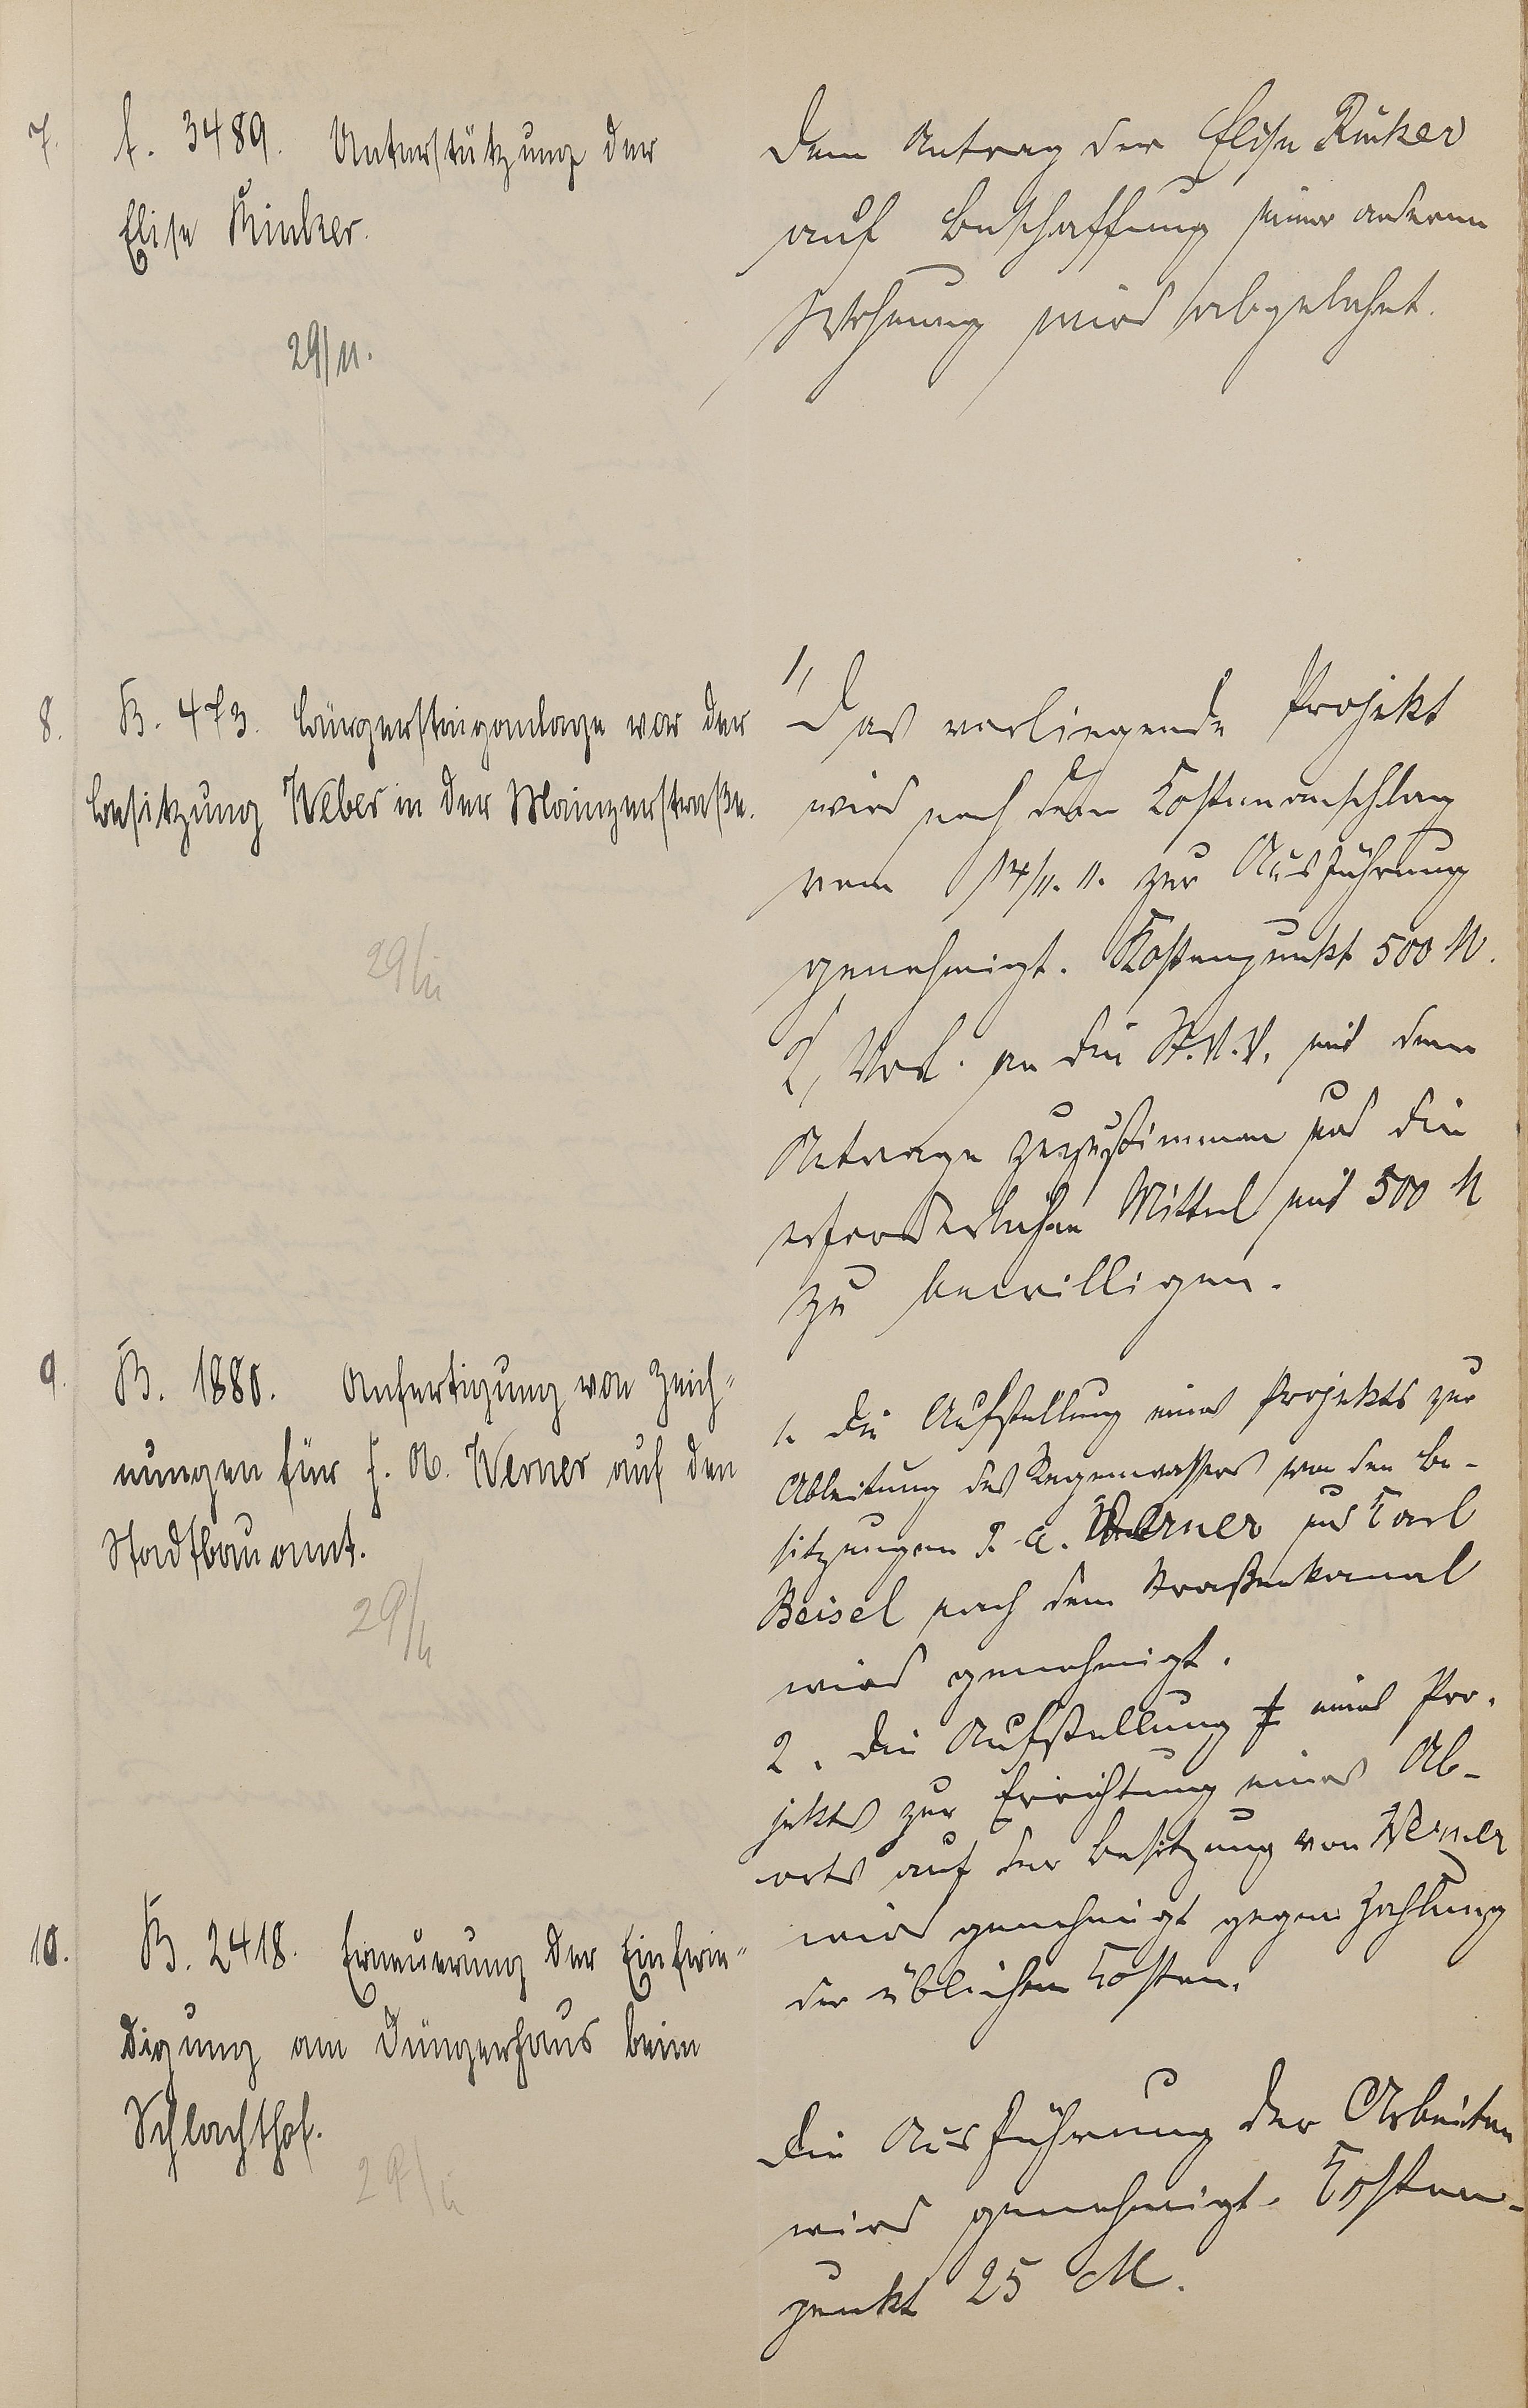 7.
A. 3489. Unterstützung der
Elise Rinker.
29/11.
Dem Antrag der Elise Rinker
auf Beschaffung einer anderen
Wohnung wird abgelehnt.
8.
B. 473. Bürgersteiganlage vor der
Besitzung Weber in der Mainzerstraße.
29/11
1, Das vorliegende Projekt
wird nach dem Kostenanschlag
vom 14/11. 11. zur Ausführung
genehmigt. Kostenpunkt 500 M.
2, Vorl. an die St.V.V. mit dem
Antrage zuzustimmen und die
erforderlichen Mittel mit 500 M
zu bewilligen.
9.
B. 1880. Anfertigung von Zeich-
nungen für F. A. Werner auf den
Stadtbauamt.
29/11
1. Die Aufstellung eines Projekts zur
Ableitung des Regenwassers von den Be-
sitzungen F. A. Werner und Karl
Beisel nach dem Straßenkanal
wird genehmigt.
2. Die Aufstellung eines Pro-
jekts zur Errichtung eines Ab-
orts auf der Besitzung von Werner
wird genehmigt gegen Zahlung
der üblichen Kosten.
10.
B. 2418. Erneuerung der Einfrie-
digung am Düngerhaus beim
Schlachthof.
29/11
Die Ausführung der Arbeiten
wird genehmigt. Kosten-
punkt 25 M.